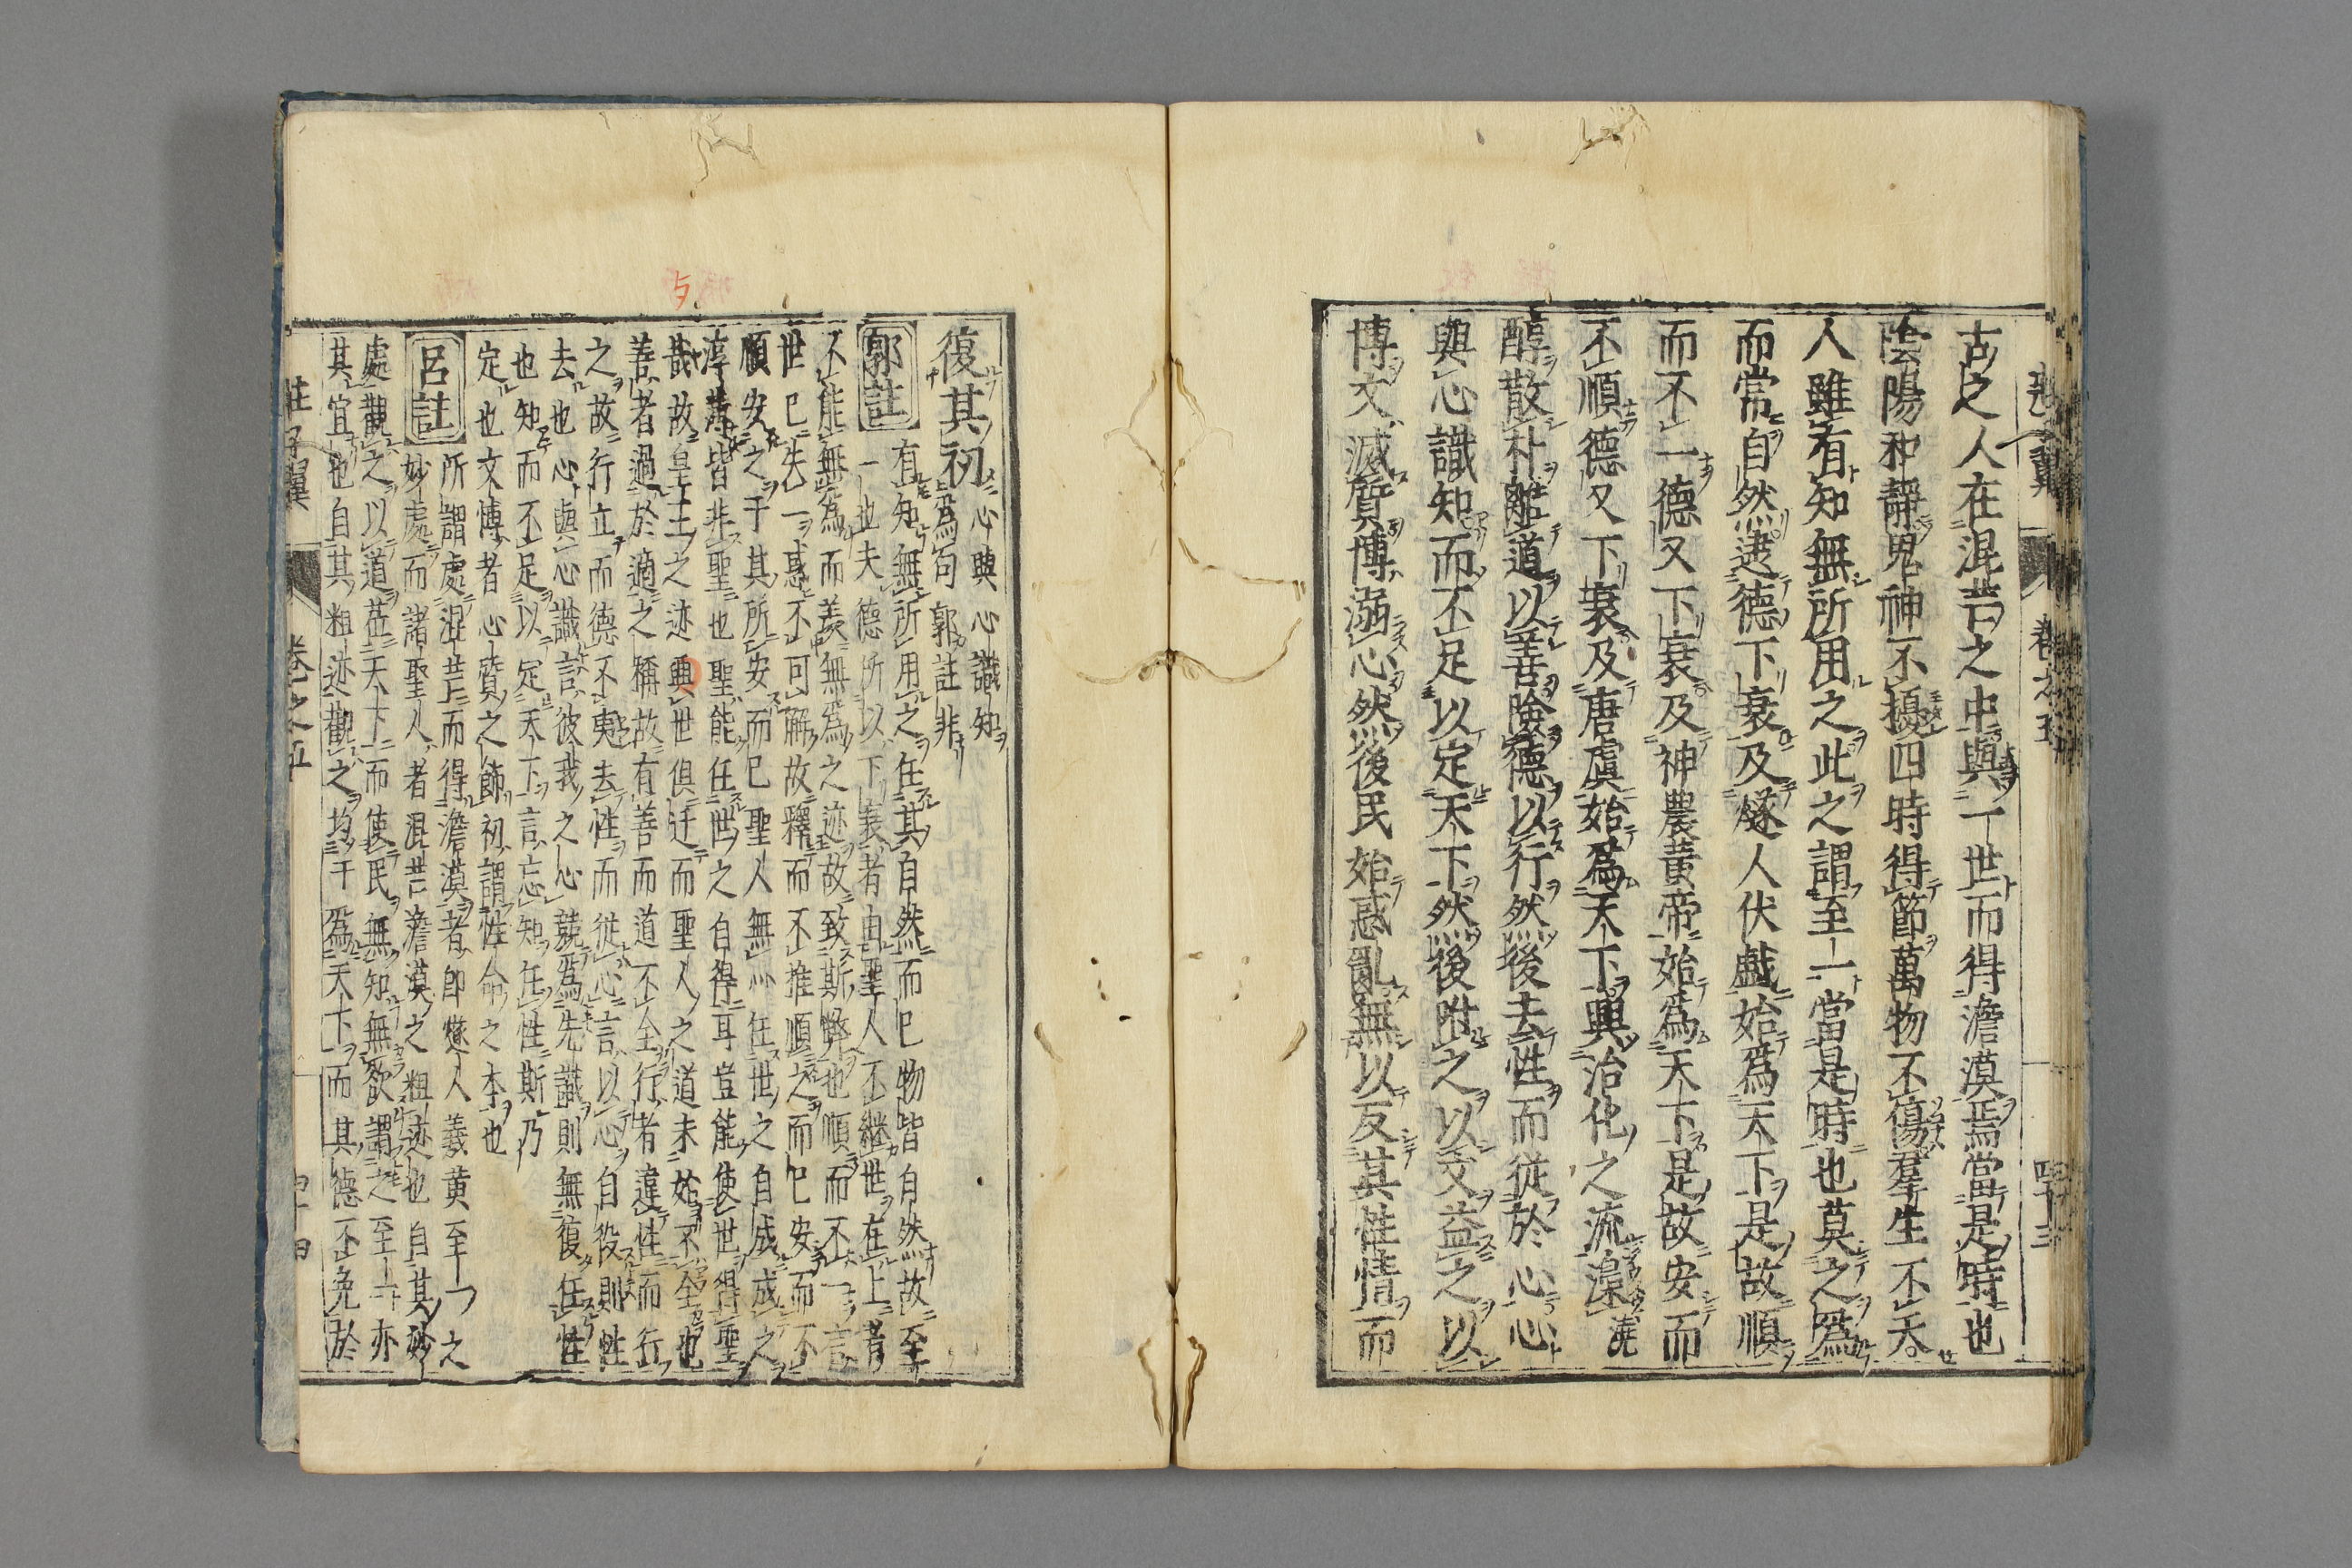 古之人在混芒之中與一世而得澹漠焉當是時也
陰陽和靜鬼神不擾四時得節萬物不傷羣生不夭
人雖有知無所用之此之謂至一當是時也莫之爲
而常自然逮德下衰及燧人伏戲始爲天下是故順
而不一德又下衰及神農黃帝始爲天下是故安而
不順德又下衰及唐虞始爲天下興治化之流澆
醇散朴離道以善險德以行然後去性而從於心心
與心識知而不足以定天下然後附之以文益之以
博文滅質博溺心然後民始惑亂無以反其性情而
卷之五
四十三
復其初
心與心識知
爲句郭註非
郭註
有知無所用之任其自然而已物皆自然故至
一也夫德所以下衰者由聖人不継世在上者
不能無爲而羨無爲之迹故致斯弊也順而不一言
世已失一惑不可解故釋而不推順之而已安而不
順安之于其所安而已聖人無心任世之自成成之
淳薄皆非聖也聖能任世之自得耳豈能使世得聖
哉故皇王之迹與世俱迁而聖人之道未始不全也
善者過於適之稱故有善而道不全行者違性而行
之故行立而德不夷去性而從心言以心自役則性
去也心與心識言彼我之心競爲先識則無復任性
也知而不足以定天下言忘知任性斯乃
定也文博者心質之飾初謂性命之本也
呂註
所謂處混芒而得澹漠者即燧人羲黄至一之
妙處而諸聖人者混芒澹漠之粗迹也自其妙
處觀之以道莅天下而使民無知無欲謂之至一亦
其宜也自其粗迹觀之均于爲天下而其德不免於
莊子翼
卷之五
四十四